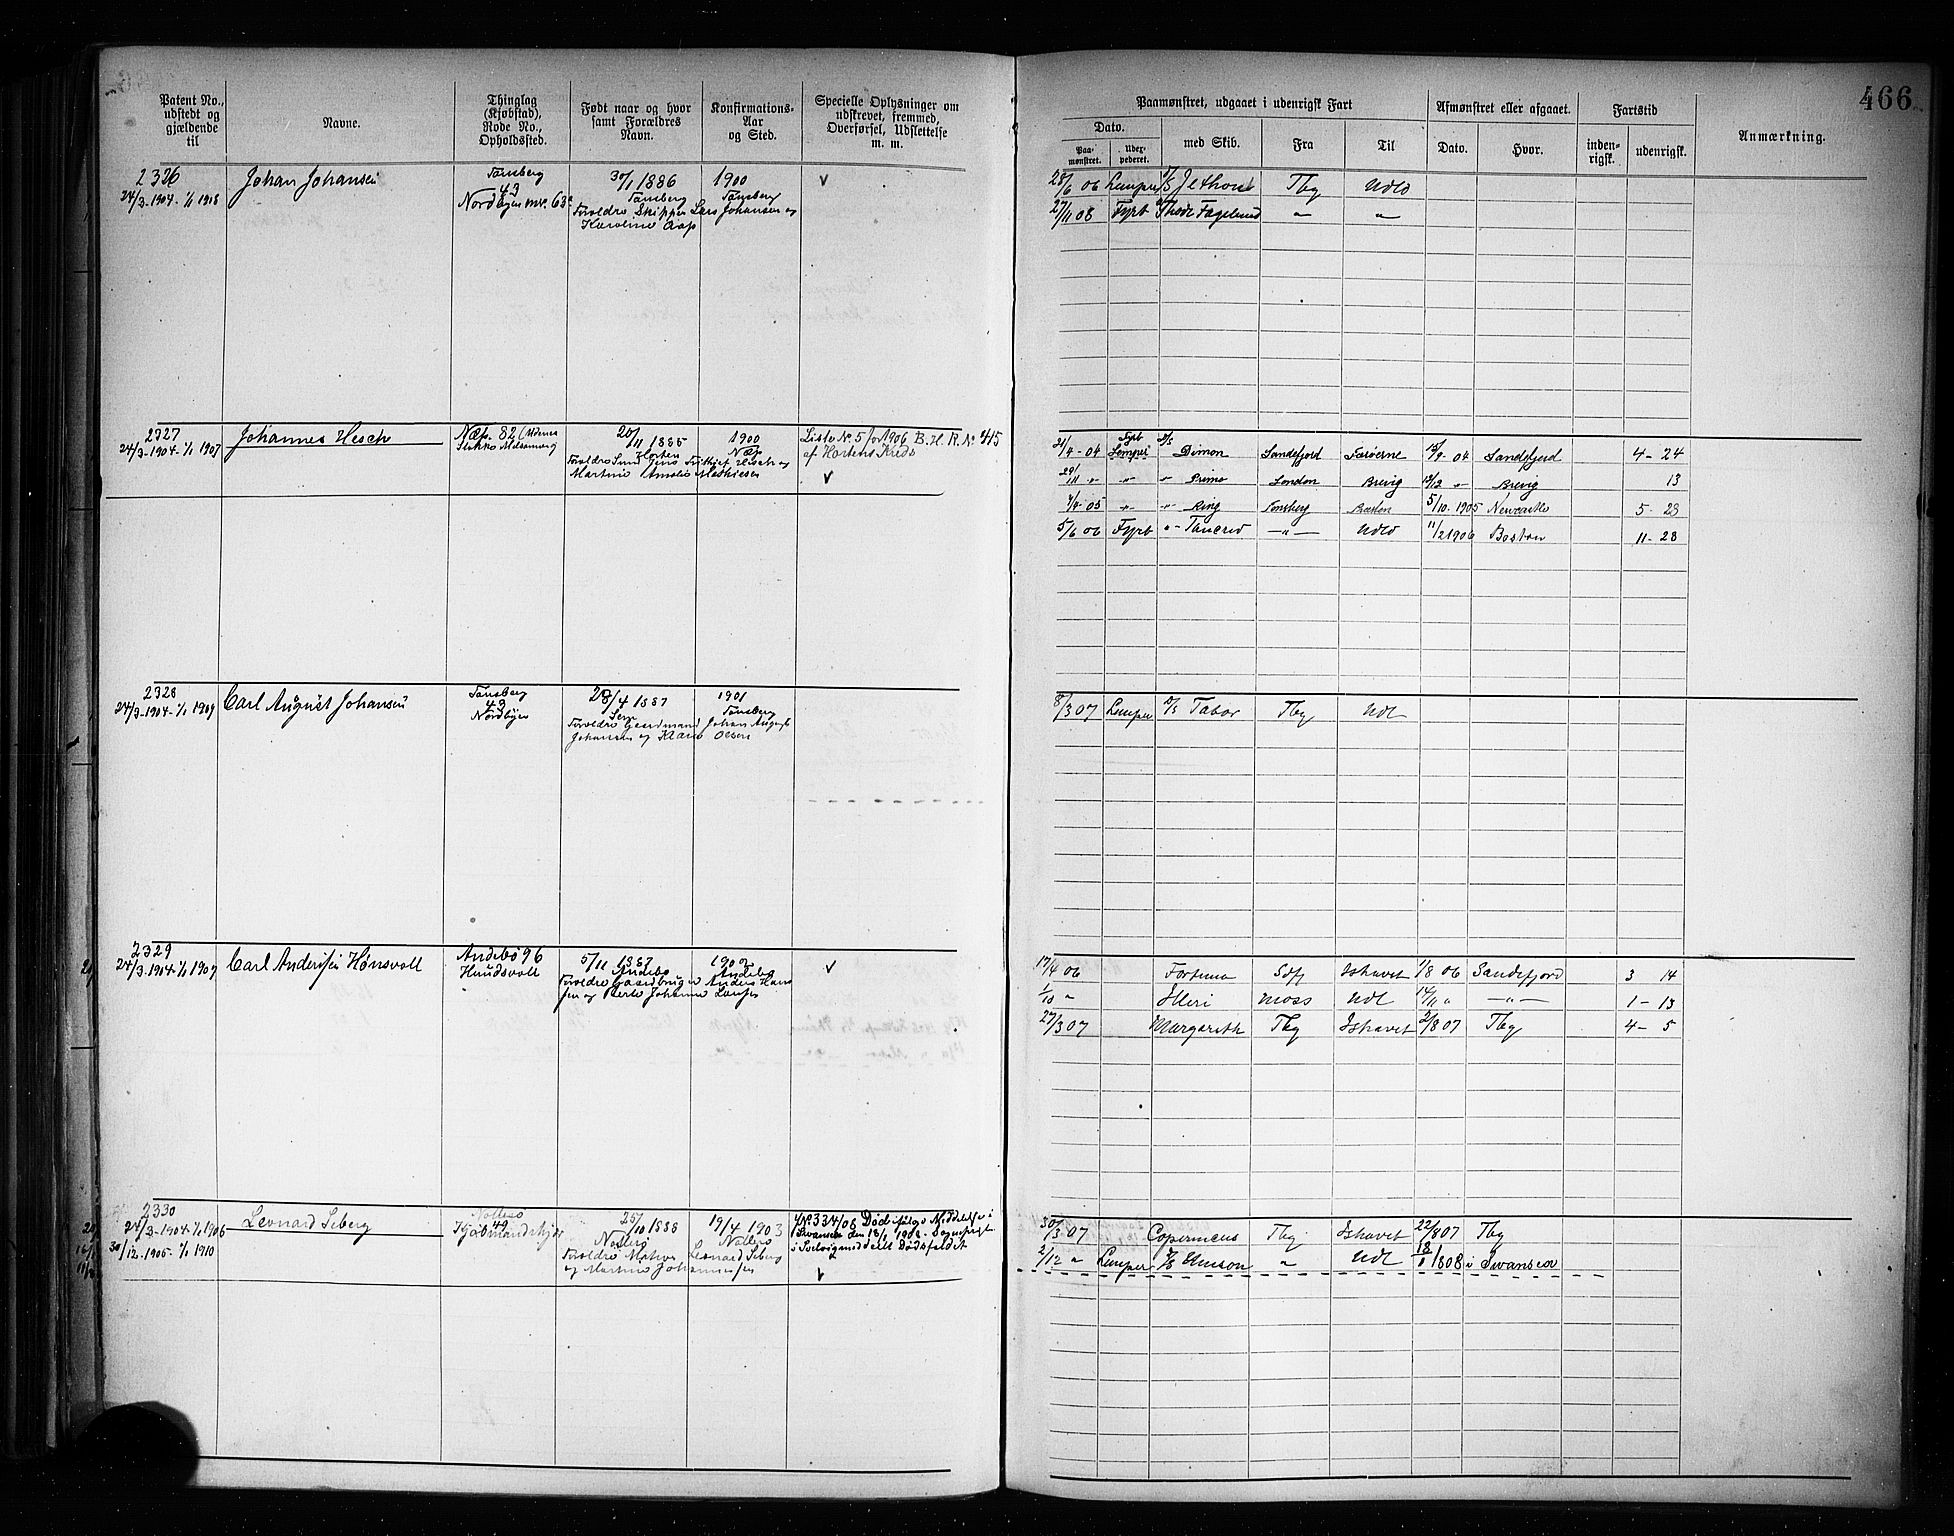 466
Patent No., udstedt og gjældende til
Navne.
Thinglag (Kjøbstad), Rode No., Opholdssted.
Født naar og hvor samt Forældres Navn.
Konfirmations-Aar og Sted.
Specielle Oplysninger om udskrevet, fremmed, Overførsel, Udslettelse m. m.
Paamønstret, udgaaet i udenrigsk Fart
Dato.
Paa-mønstret.
Udex-pederet.
med Skib.
Fra
Til
Afmønstret eller afgaaet.
Dato.
Hvor.
Fartstid
inden-rigsk.
udenrigsk.
Anmærkning.
2326
24/3-1904-1/1 1908
Johan Johansen
Tønsberg
43
Nordbyen
30/1 1886
Tønsberg
Forældre Skipper Lars Johansen og
Karoline Aap
1900
Tønsberg
28/6 06 Lempe Tbg Udld
27/11 08 Fyrb Fagelund " "
2327
24/3-1904-1/1 1907
Johannes Hesch
Næs. 82
20/11 1885
Horten
1900
Næs
Liste No. 5 for 1906 B. H. R. No 415
af Hortens Kreds
21/4-04 Fyrb Lemper Dimon Sandefjord Færøerne 15/9-04 Sandefjord 4-24
29/11 " " " Primo London Brevig 12/12 " Brevig 13
4/4-05 " " Ring Tønsberg Boston 5/10-1905 Newcastle 5-23
5/6 06 Fyrb " Tancred " Udld 11/2 1906 Boston 11-28
2328
24/3-1904-1/1 1909
Carl August Johansen
Tønsberg
43
Nordbyen
28/4 1887
Sem
Forældre Gaardmand Johan August
Johansen og Klara Olsen
1901
Tønsberg
8/3 07 Lemper D/S Tabor Tbg Udl
2329
24/3-1904-1/1 1909
Carl Andersen Hønsvall
Andebø 96
5/11 1887
Andebø
Forældre Gaardbruger Anders Hansen
og Berte Johanne Larsen
1902
Andebø
17/4 06 Fortuna Sdfj Ishavet 1/8 06 Sandefjord 3 14
1/10 " Moss Udl 14/11 " " 1-13
27/3 07 Margareth Tbg Ishavet 2/8 07 Tbg 4-5
2330
24/3-1904-1/1 1906
30/12-1905-1/1 1910
Leonard Seberg
Nøtterø
49
25/10 1888
Nøtterø
Forældre Matros Leonard Seberg
og Martine Johannessen
19/4 1903
Nøtterø
No 334/08 Død ifølge Meddelelse i
Swansea den 18/1 1908.
30/3 07 Copernicus Tbg Ishavet 22/8 07 Tbg
2/12 " Lemper D/S Unison " Udl 18/1 1908 i Swansea